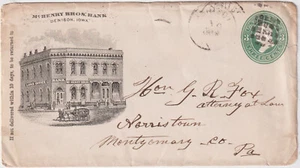 McHENRY BRO'S. BANK
DENISON, IOWA.
If not delivered within 10 days, to be returned to
Hon G. R. Fox
Attorney at Law
Norristown
Montgomery Co.
Pa